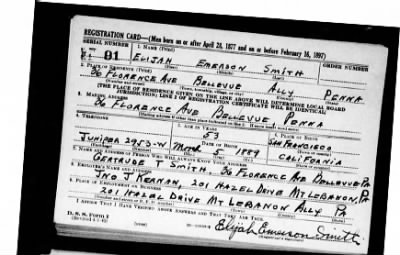 REGISTRATION CARD—(Men born on or after April 28, 1877 and on or before February 16, 1897)
SERIAL NUMBER 1. NAME (Print) ORDER NUMBER
U 91 ELIJAH EMERSON SMITH
2. PLACE OF RESIDENCE (Print)
86 FLORENCE AVE BELLEVUE ALLY PENNA
(THE PLACE OF RESIDENCE GIVEN ON THE LINE ABOVE WILL DETERMINE LOCAL BOARD
JURISDICTION; LINE 2 OF REGISTRATION CERTIFICATE WILL BE IDENTICAL)
3. MAILING ADDRESS
86 FLORENCE AVE BELLEVUE PENNA
4. TELEPHONE 5. AGE IN YEARS 6. PLACE OF BIRTH
53 SAN FRANCISCO
DATE OF BIRTH
JUNIPER 2953-W 1889 CALIFORNIA
7. NAME AND ADDRESS OF PERSON WHO WILL ALWAYS KNOW YOUR ADDRESS
GERTRUDE T SMITH 86 FLORENCE AVE BELLEVUE PA
8. EMPLOYER'S NAME AND ADDRESS
JNO J KEENAN, 201 HAZEL DRIVE MT LEBANON, PA
9. PLACE OF EMPLOYMENT OR BUSINESS
201 HAZEL DRIVE MT LEBANON ALLY PA
I AFFIRM THAT I HAVE VERIFIED ABOVE ANSWERS AND THAT THEY ARE TRUE.
D. S. S. Form 1
Elijah Emerson Smith